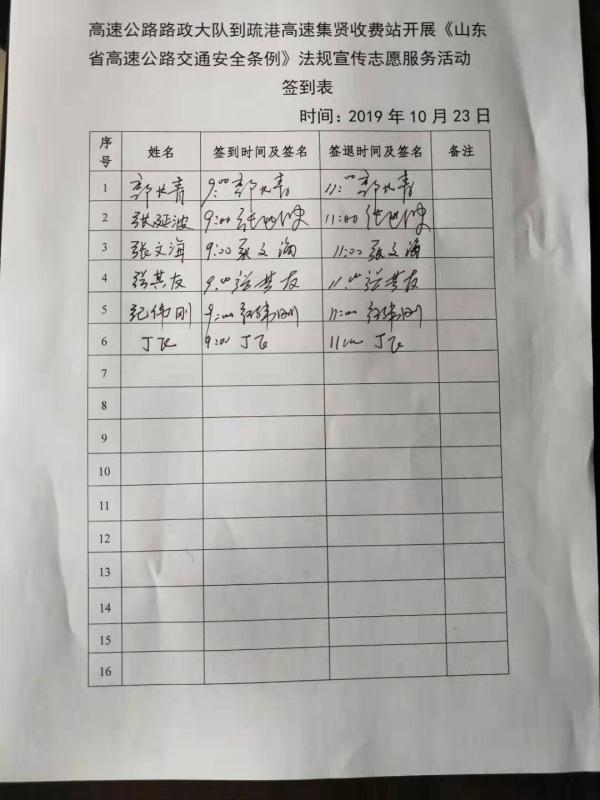 高速公路路政大队到疏港高速集贤收费站开展《山东
省高速公路交通安全条例》法规宣传志愿服务活动
签到表
时间：2019年10月23日
序号 姓名 签到时间及签名 签退时间及签名 备注
1 郭长青 9:00 郭长青 11:00 郭长青
2 张延波 9:00 张延波 11:00 张延波
3 张文海 9:00 张文海 11:00 张文海
4 张其友 9:00 张其友 11:00 张其友
5 纪伟刚 9:00 纪伟刚 11:00 纪伟刚
6 丁飞 9:00 丁飞 11:00 丁飞
7
8
9
10
11
12
13
14
15
16